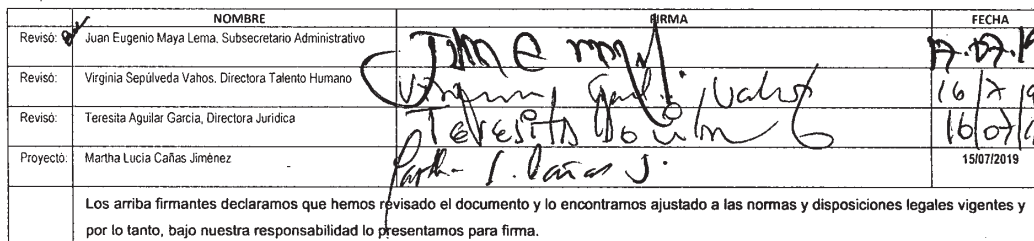 NOMBRE FIRMA FECHA
Revisó: Juan Eugenio Maya Lema. Subsecretario Administrativo 17.07.19
Revisó: Virginia Sepúlveda Vahos. Directora Talento Humano Virginia Vahos 16/7/19
Revisó: Teresita Aguilar García, Directora Jurídica Teresita Aguilar 16/07/
Proyectó: Martha Lucía Cañas Jiménez Martha L. Cañas J. 15/07/2019
Los arriba firmantes declaramos que hemos revisado el documento y lo encontramos ajustado a las normas y disposiciones legales vigentes y
por lo tanto, bajo nuestra responsabilidad lo presentamos para firma.